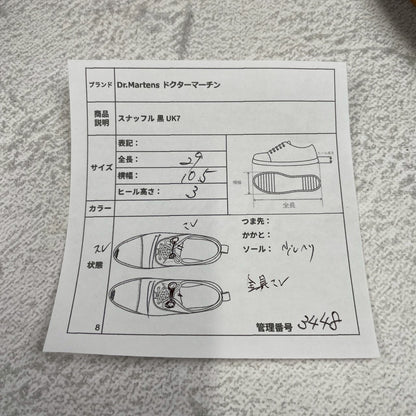 ブランド Dr.Martens ドクターマーチン
商品説明 スナッフル 黒 UK7
サイズ
表記：
全長： 29
横幅： 10.5
ヒール高さ： 3
ヒール高さ
横幅
全長
カラー
状態
スレ
スレ
つま先：
かかと：
ソール：
金具スレ
8
管理番号 3448